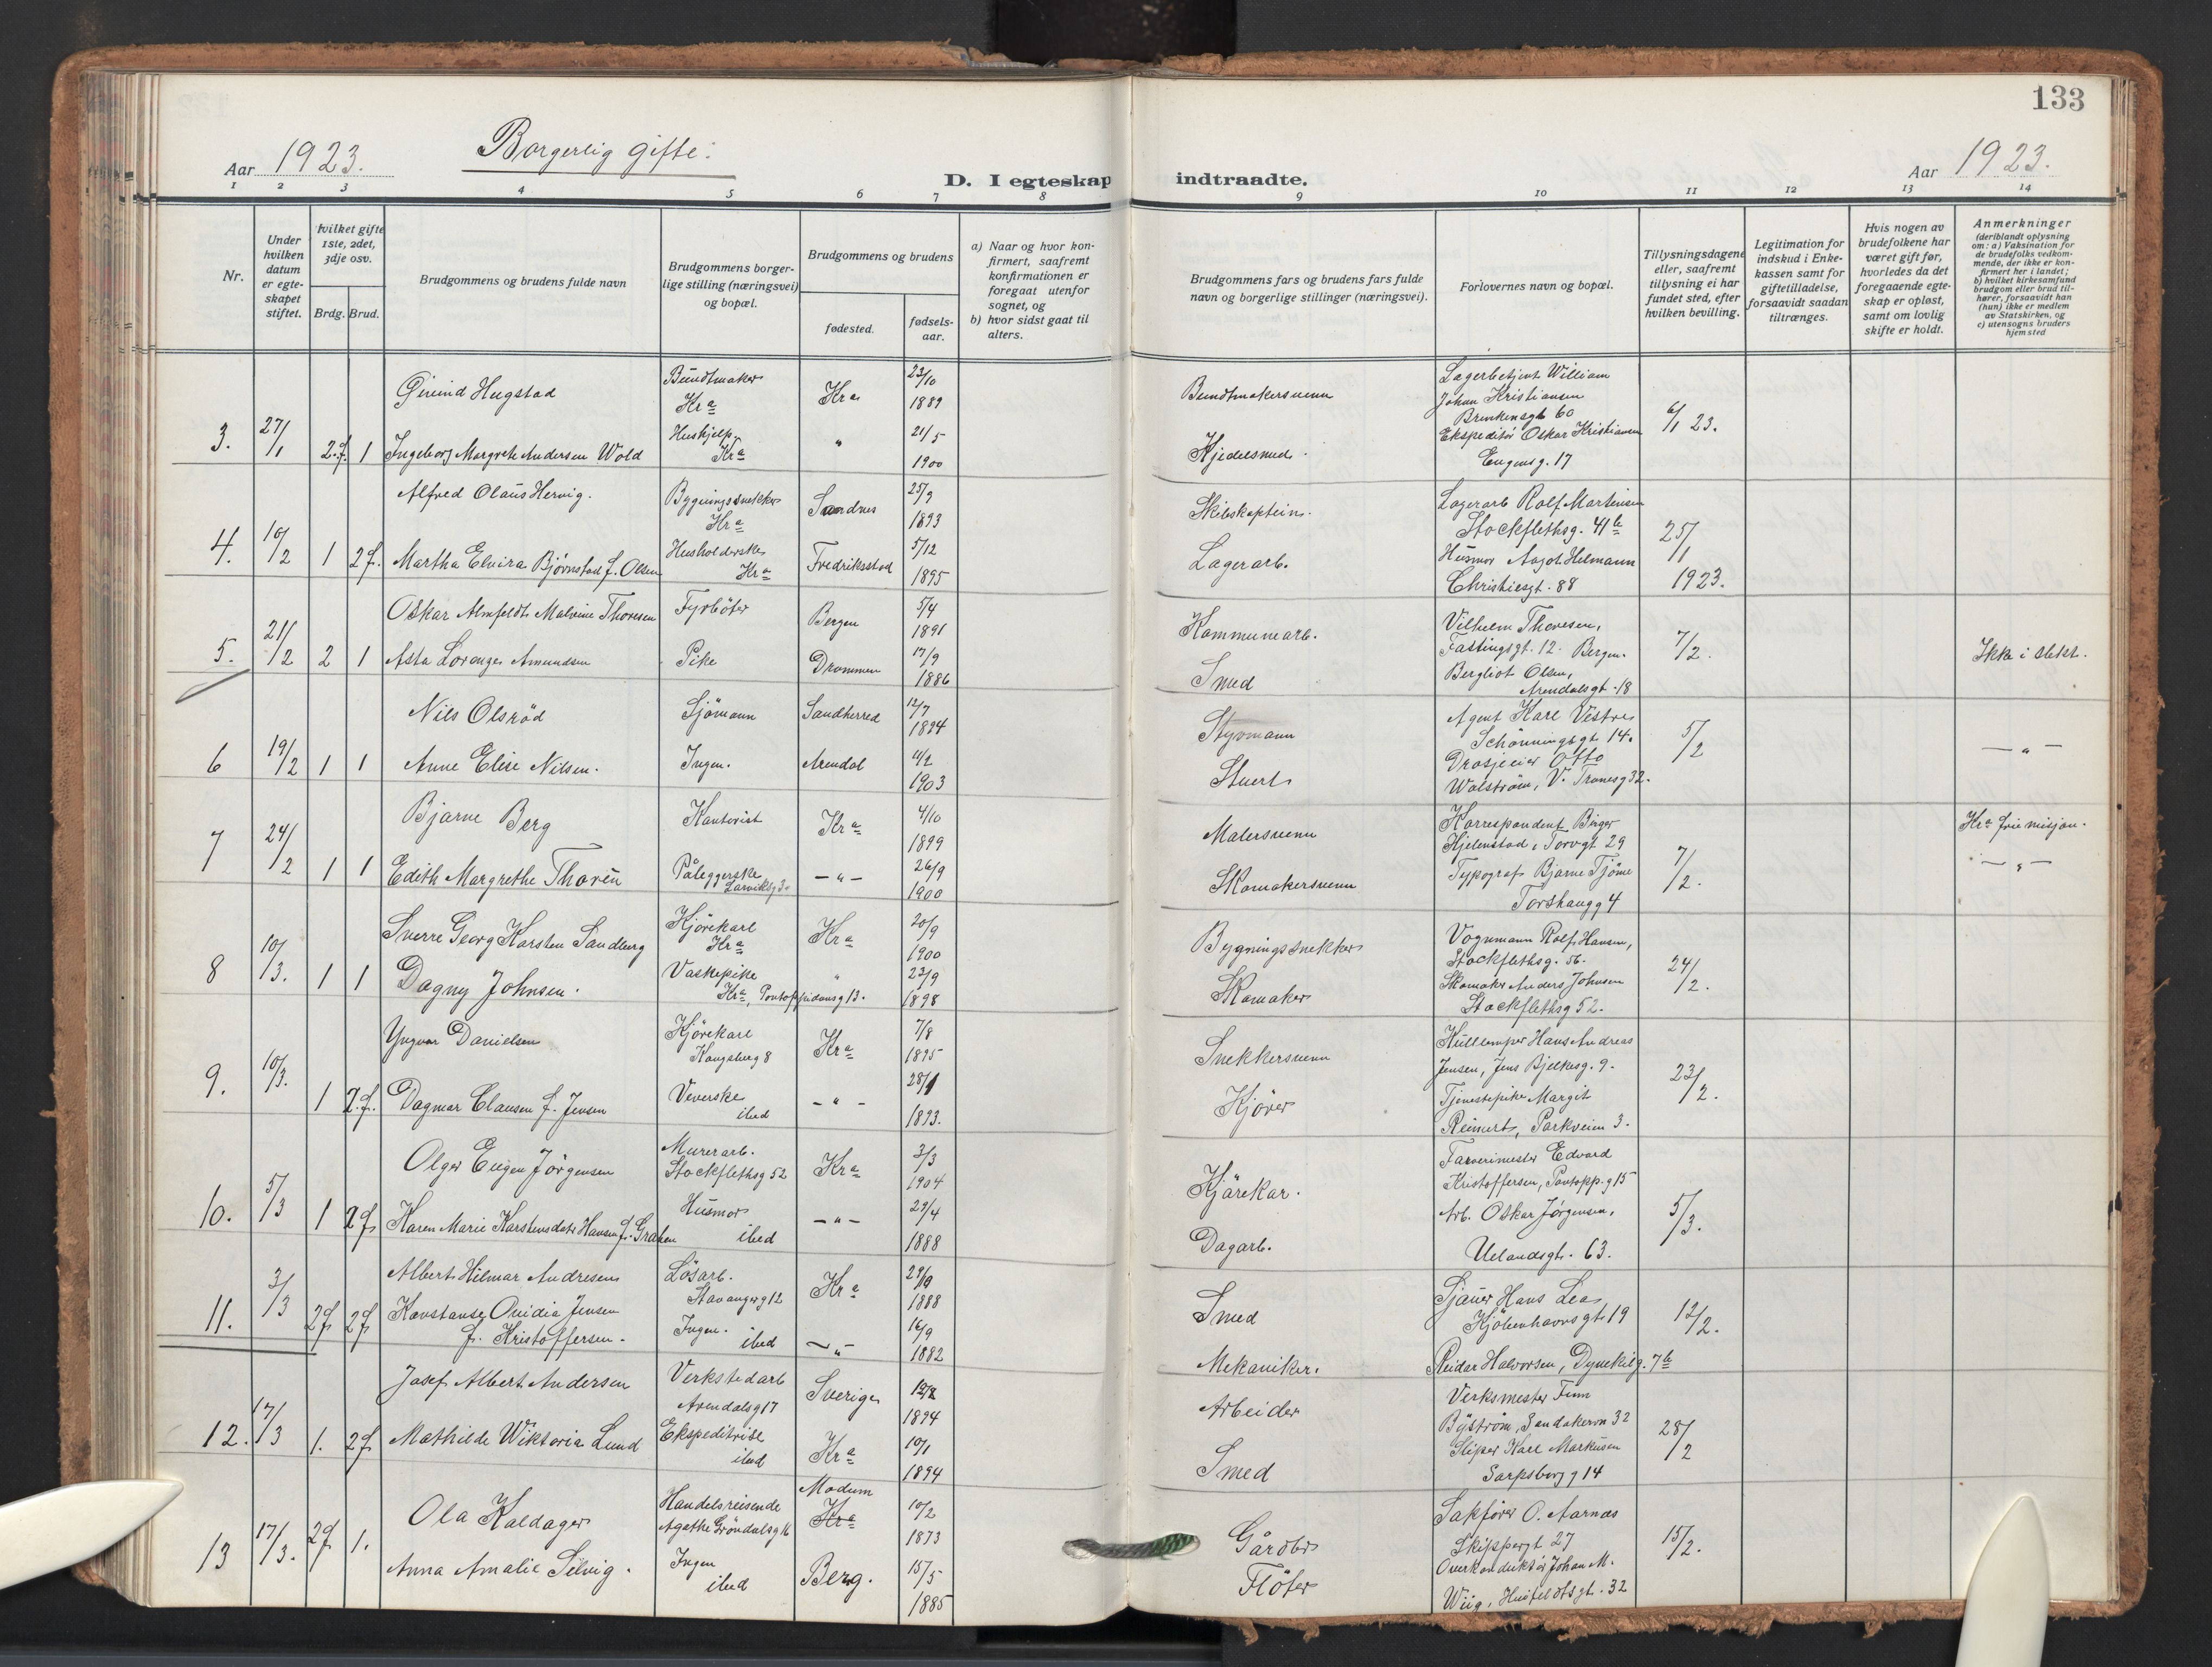 133
Aar 1923. Borgerlig gifte: Aar 1923.
D. I egteskap indtraadte.
1 2 3 4 5 6 7 8 9 10 11 12 13 14
Nr.
Under hvilken datum er egteskapet stiftet.
hvilket gifte 1ste, 2det, 3dje osv.
Brdg. Brud.
Brudgommens og brudens fulde navn
Brudgommens borgerlige stilling (næringsvei) og bopæl.
Brudgommens og brudens
fødested. fødselsaar.
a) Naar og hvor konfirmert, saafremt konfirmationen er foregaat utenfor sognet, og
b) hvor sidst gaat til alters.
Brudgommens fars og brudens fars fulde navn og borgerlige stillinger (næringsvei).
Forlovernes navn og bopæl.
Tillysningsdagene eller, saafremt tillysning ei har fundet sted, efter hvilken bevilling.
Legitimation for indskud i Enkekassen samt for giftetilladelse, forsaavidt saadan tiltrænges.
Hvis nogen av brudefolkene har været gift før, hvorledes da det foregaaende egteskap er opløst, samt om lovlig skifte er holdt.
Anmerkninger
(deriblandt oplysning om: a) Vaksination for de brudefolks vedkommende, der ikke er konfirmert her i landet;
b) hvilket kirkesamfund brudgom eller brud tilhører, forsaavidt han (hun) ikke er medlem av Statskirken, og
c) utensogns bruders hjemsted
3. 27/1 2.f. 1
Øivind Hugstad Bundtmaker Kra Kra 23/10 1889 Bundtmakersvenn
Ingeborg Margrete Andersen Wold Hushjelp, Kra " 21/5 1900 Kjedelsmed.
Lagerbetjent William
Johan Kristiansen
Brinkensgt 60
Ekspeditør Oskar Kristiansen
Eugensg. 17
6/1 23.
4. 10/2 1 2f.
Alfred Olaus Hervig. Bygningssnekker Kra Sandnes 25/9 1893 Skibskaptein.
Martha Elvira Bjørnstad f. Olsen Husholderske Kra Fredriksstad 5/12 1895 Lagerarb.
Lagerarb Rolf Martinsen
Stockflethsg. 41b
Husmor Aagot Helmann
Christiesgt. 88
25/1 1923.
5. 21/2 2 1
Oskar Almfeldt Malvine Thoresen Fyrböter Bergen 5/4 1891 Kommunearb.
Asta Lorenze Amundsen Pike Drammen 17/9 1886 Smed
Vilhelm Thoresen,
Fastingsgt. 12. Bergen.
Bergliot Olsen,
Arendalsgt. 18
7/2. Ikke i slekt.
6 19/2 1 1
Nils Olsröd Sjömann Sandherred 12/7 1894 Styrmann
Anne Elise Nilsen. Ingen. Arendal 4/2 1903 Stuert
Agent Karl Vestre
Schönningsgt 14.
Drosjeeier Otto
Walström, V. Tranesg 32.
5/2 — " —
7 24/2 1 1
Bjarne Berg Kontorist Kra 4/10 1899 Malersvenn
Edith Margrethe Thorén Påleggerske Larviksg 3. — " — 26/9 1900 Skomakersvenn
Korrespondent Birger
Hjelmstad, Torvgt 29
Typograf Bjarne Tjöme
Torshaugg 4
7/2. Kra frie misjon.
— " —
8 10/3. 1 1
Sverre Georg Karsten Sandberg Kjörekarl Kra Kra 20/9 1900 Bygningssnekker
Dagny Johnsen. Vaskepike Kra, Pontoppidansg 13. " 23/9 1898 Skomaker
Vognmann Rolf Hansen,
Stockflethsg. 56.
Skomaker Anders Johnsen
Stockflethsg 52.
24/2.
9. 10/3. 1 2.f.
Yngvar Danielsen Kjörekarl Kongsberg 8 Kra 7/8 1895 Snekkersvenn
Dagmar Clausen f. Jensen Veverske ibid — " — 28/1 1893. Kjörer
Kullemper Hans Andreas
Jensen, Jens Bjelkesg. 9.
Tjenestepike Margit
Reinert, Parkveien 3.
23/2.
10. 5/3 1 2f
Olger Eugen Jörgensen Murerarb. Stockflethsg 52 Kra 3/3 1904 Kjörekar.
Karen Marie Karstensdatr Hansen f. Graben Husmor ibid — " — 29/4 1888 Dagarb.
Farverimester Edvard
Kristoffersen, Pontopp.g 15
Arb. Oskar Jørgensen,
Uelandsgt. 63.
5/3.
11. 3/3 2f 2f
Albert Hilmar Andresen Lösarb. Stavangerg 12 Kra 29/9 1888 Smed
Konstanse Ovidia Jensen
f. Kristoffersen. Ingen. ibid — " — 16/9 1882 Mekaniker.
Sjauer Hans Lea
Kjöbenhavnsgt 19
Reidar Halvorsen, Dynekilg. 7b
12/2.
12. 17/3 1. 2f
Josef Albert Andersen Verkstedarb Arendalsg 17 Sverige 12/8 1894 Arbeider
Mathilde Wiktoria Lund Ekspeditrise ibid Kra 10/1 1894 Smed
Verksmester Finn
Byström, Sandakervn 32
Sliper Karl Markusen
Sarpsborgg 14
28/2
13 17/3. 2f 1.
Ola Kaldager Handelsreisende Agathe Gröndalsg 16 Modum Kra 10/2 1873 Gårdbr
Anna Amalie Selvig. Ingen ibid Berg. 15/5 1885 Flöter
Sakförer O. Aarnæs
Skippergt 27
Overkonduktör Johan M.
Wiig, Huitfeldtsgt. 32
15/2.